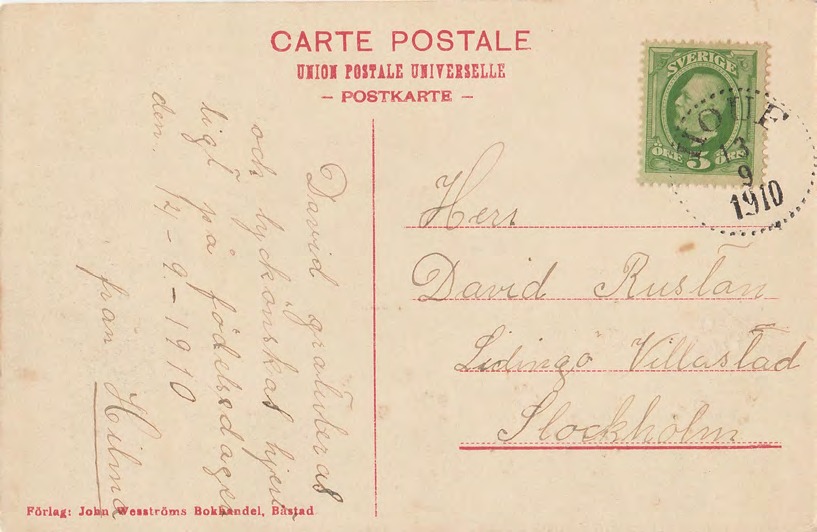 CARTE POSTALE
UNION POSTALE UNIVERSELLE
- POSTKARTE -
SVERIGE
ÖRE 5 ÖRE
13
9
1910
David gratuleras
och lyckönskas hjert
ligt på födelsedagen
den 14 - 9 - 1910
från Hilma
Herr
David Ruslan
Lidingö Villastad
Stockholm
Förlag: John Wesströms Bokhandel, Båstad